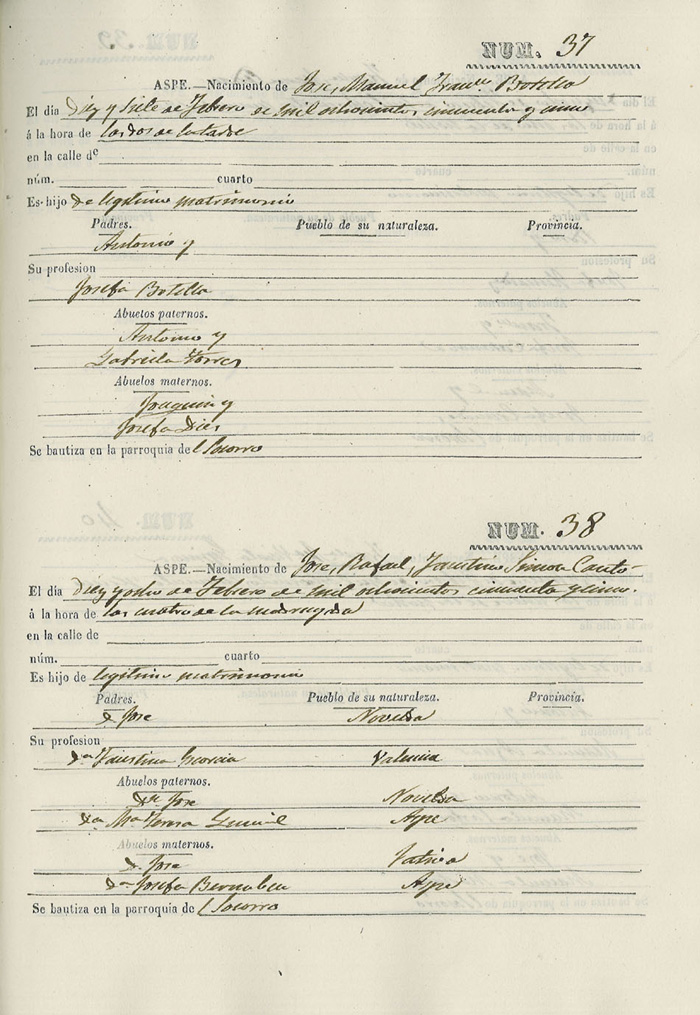 NUM. 37
ASPE.—Nacimiento de Jose, Manuel Botella
El dia Diez y siete de Febrero de mil ochocientos cincuenta y cinco
á la hora de las dos de la tarde
en la calle de
núm. cuarto
Es hijo de legitimo matrimonio
Padres. Pueblo de su naturaleza. Provincia.
Antonio y
Su profesion
Josefa Botella
Abuelos paternos.
Antonio y
Gabriela Torres
Abuelos maternos.
Joaquin y
Josefa Dies
Se bautiza en la parroquia del Socorro
NUM. 38
ASPE.—Nacimiento de Jose, Rafael, Faustino Simon Cantó
El dia Diez y ocho de Febrero de mil ochocientos cincuenta y cinco.
á la hora de las cuatro de la madrugada
en la calle de
núm. cuarto
Es hijo de legitimo matrimonio
Padres. Pueblo de su naturaleza. Provincia.
Dn Jose Novelda
Su profesion
Da Faustina Garcia Valencia
Abuelos paternos.
Dn Jose Novelda
Da Ma Teresa Aspe
Abuelos maternos.
Dn Jose Jativa
Da Josefa Bernabeu Aspe
Se bautiza en la parroquia del Socorro